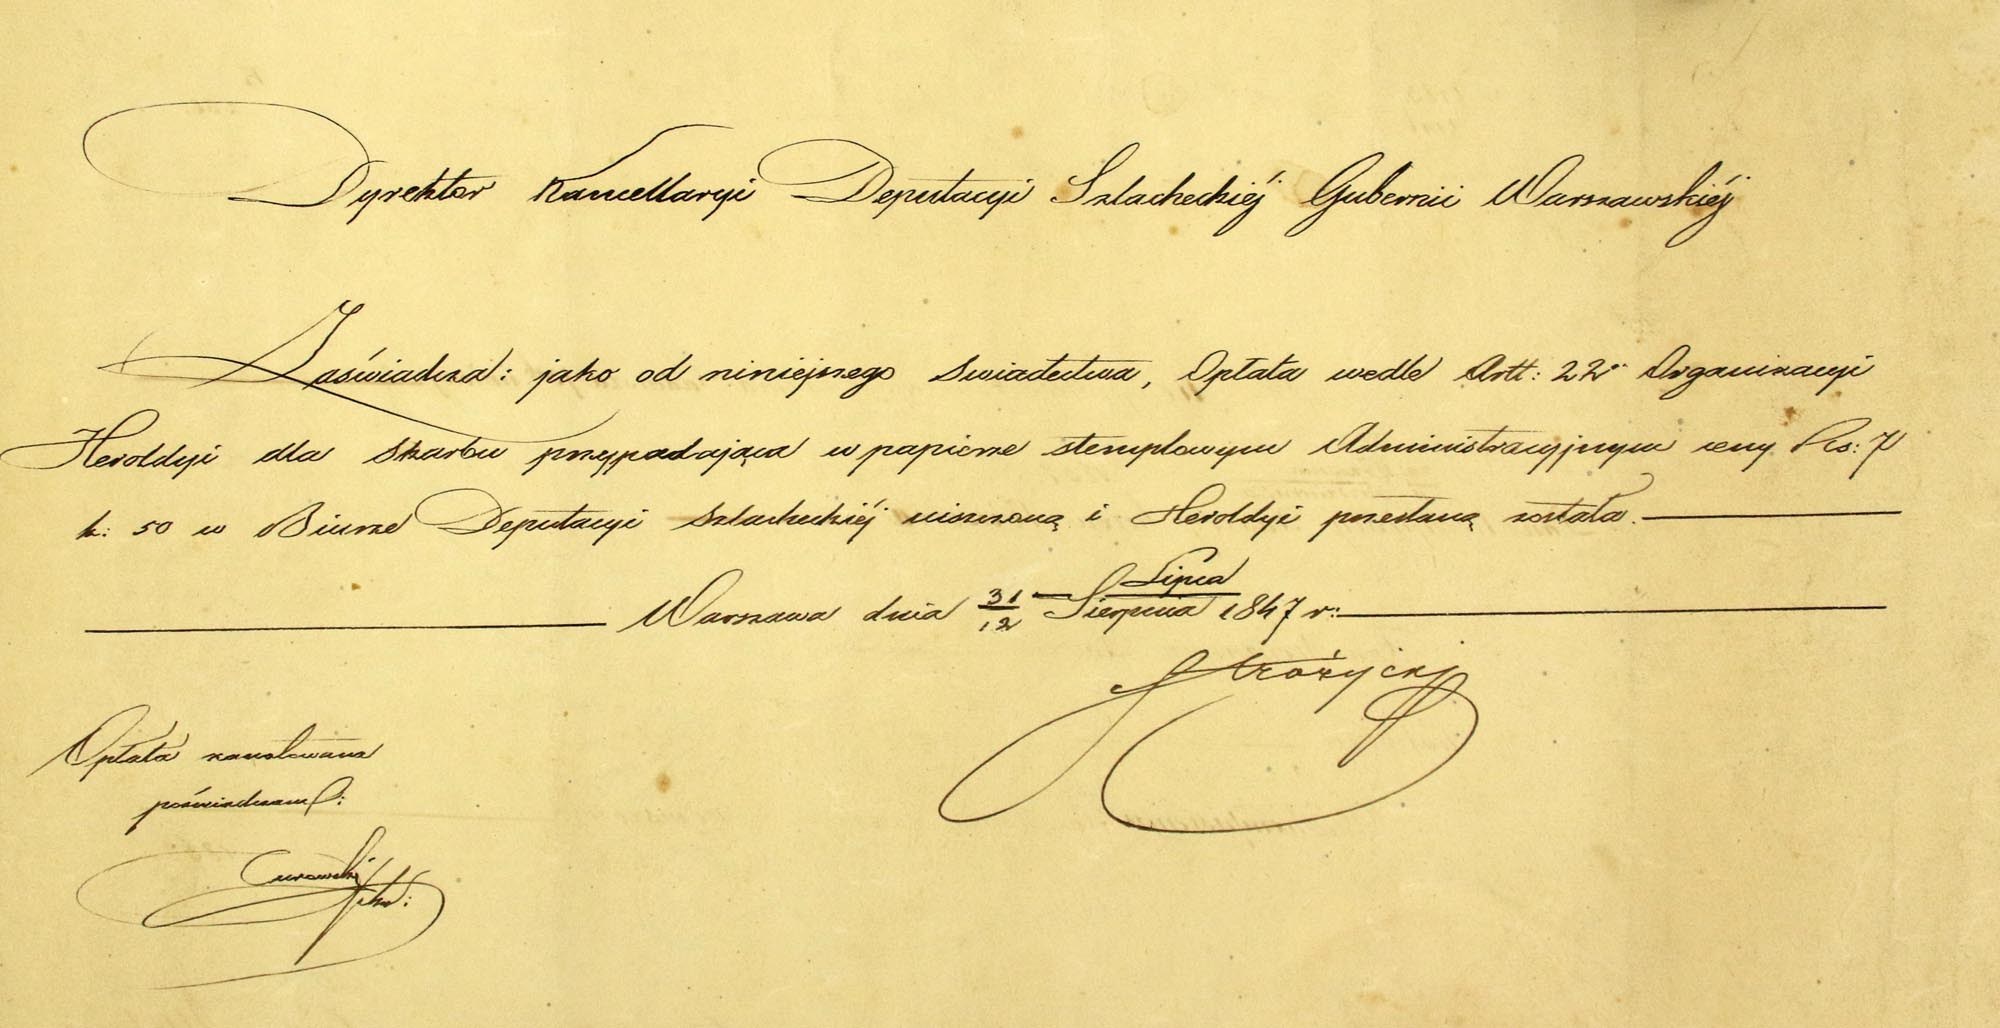 Dyrektor Kancellaryi Deputacyi Szlacheckiéj Gubernii Warszawskiéj
Zaświadcza: jako od niniejszego Swiadectwa, Opłata wedle Artt: 22 Organizacyi
Heroldyi dla Skarbu przypadająca w papierze stemplowym Administracyjnym ceny Rs: 7
k: 50 w Biurze Deputacyi Szlacheckiéj uiszczoną i Heroldyi przesłaną została.
Lipca
Warszawa dnia 31/12 Sierpnia 1847 r:
Opłata zanotowana
poświadczam